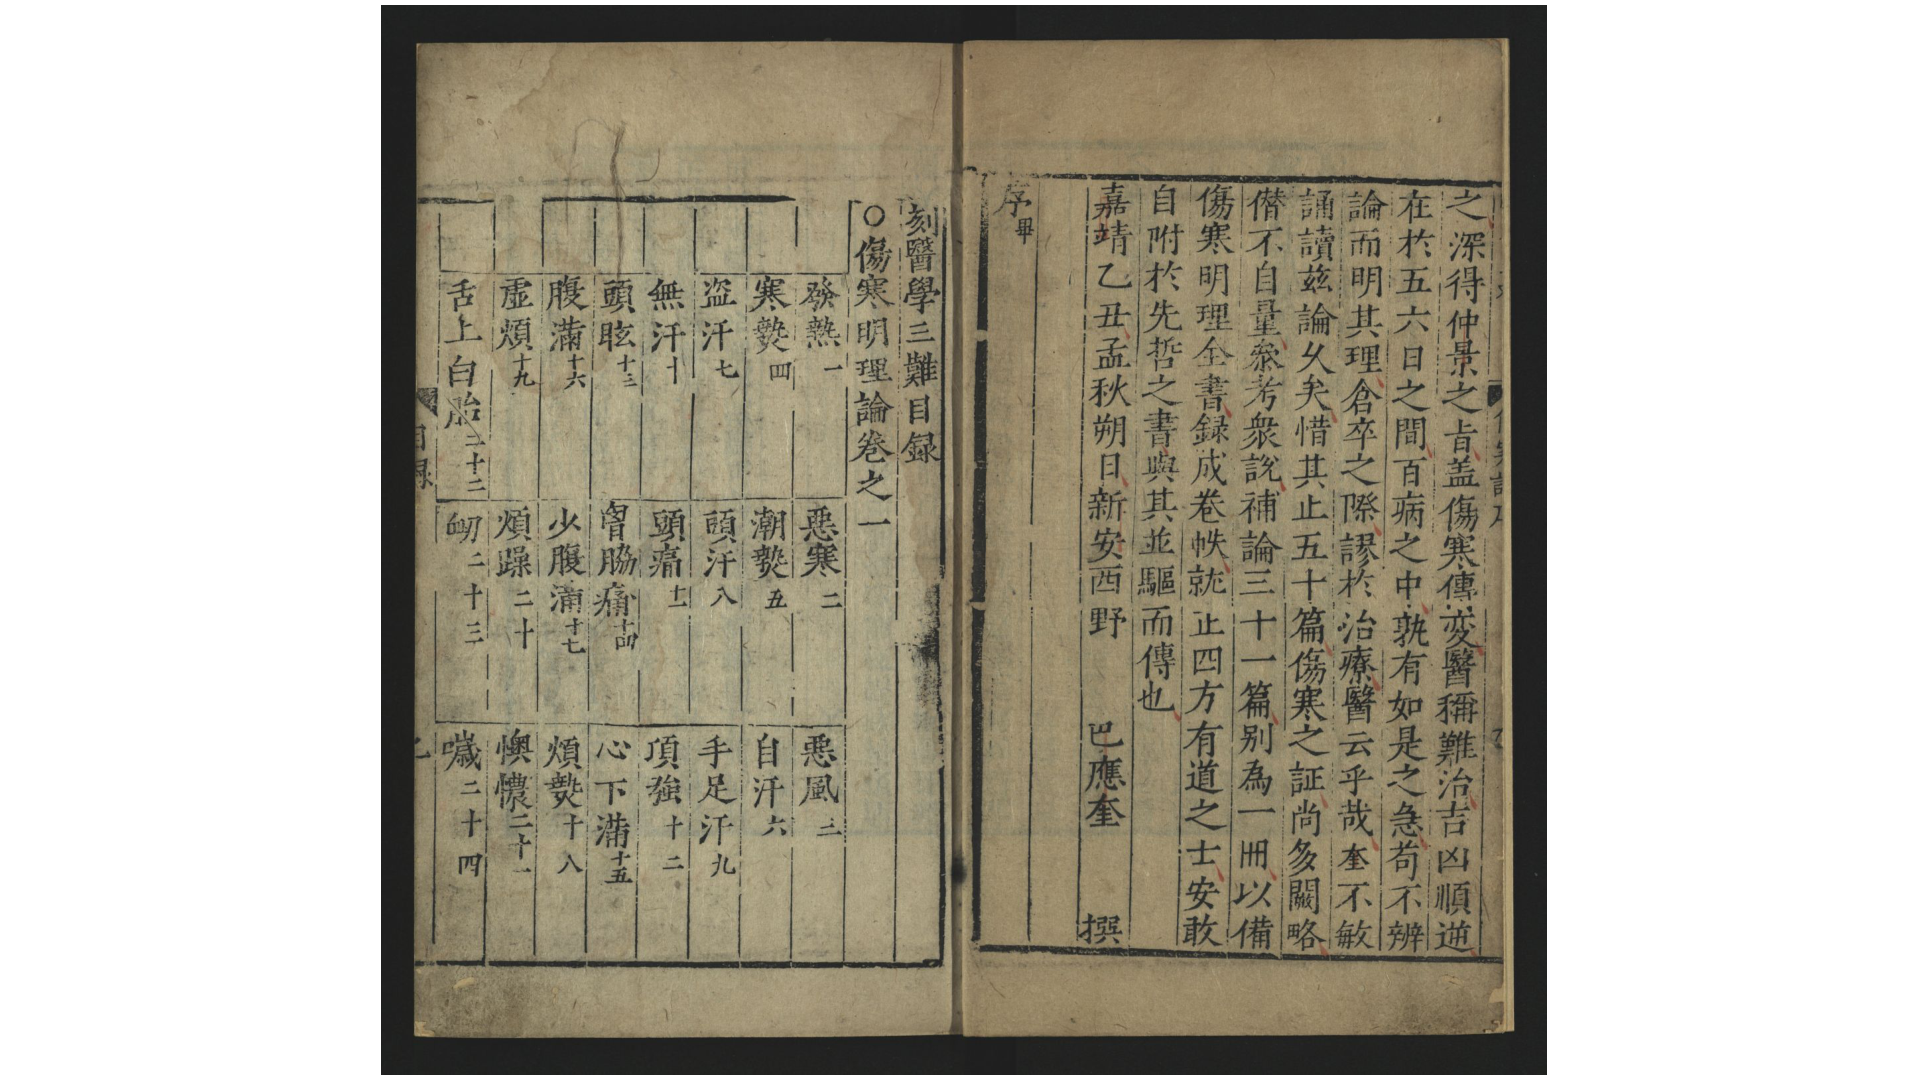 之深得仲景之旨盖傷寒傳変醫稱難治吉凶順逆
在於五六日之間百病之中孰有如是之急苟不辨
論而明其理倉卒之際謬於治療醫云乎哉奎不敏
誦讀兹論乆矣惜其止五十篇傷寒之証尚多闕略
僭不自量叅考衆說補論三十一篇别為一冊以備
傷寒明理全書録成卷帙就正四方有道之士安敢
自附於先哲之書與其並驅而傳也
嘉靖乙丑孟秋朔日新安西野 巴應奎 撰
序畢
刻醫學三難目録
○傷寒明理論卷之一
發熱一 惡寒二 惡風三
寒熱四 潮熱五 自汗六
盜汗七 頭汗八 手足汗九
無汗十 頭痛十一 項強十二
頭眩十三 胷脇痛十四 心下滿十五
腹滿十六 少腹滿十七 煩熱十八
虛煩十九 煩躁二十 懊憹二十一
舌上白胎二十二 衂二十三 噦二十四
目録